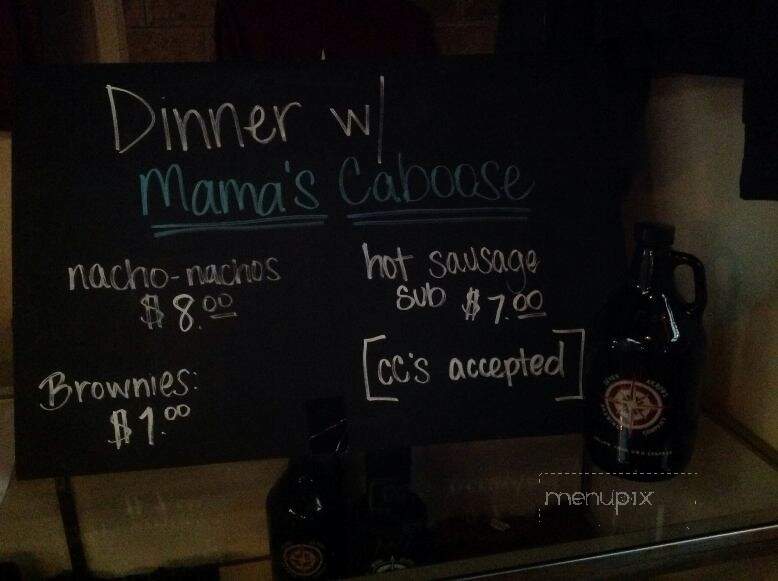 Dinner w/
Mama's Caboose
nacho-nachos
$8.00
hot sausage
sub $7.00
Brownies:
$1.00
[cc's accepted]
menupix